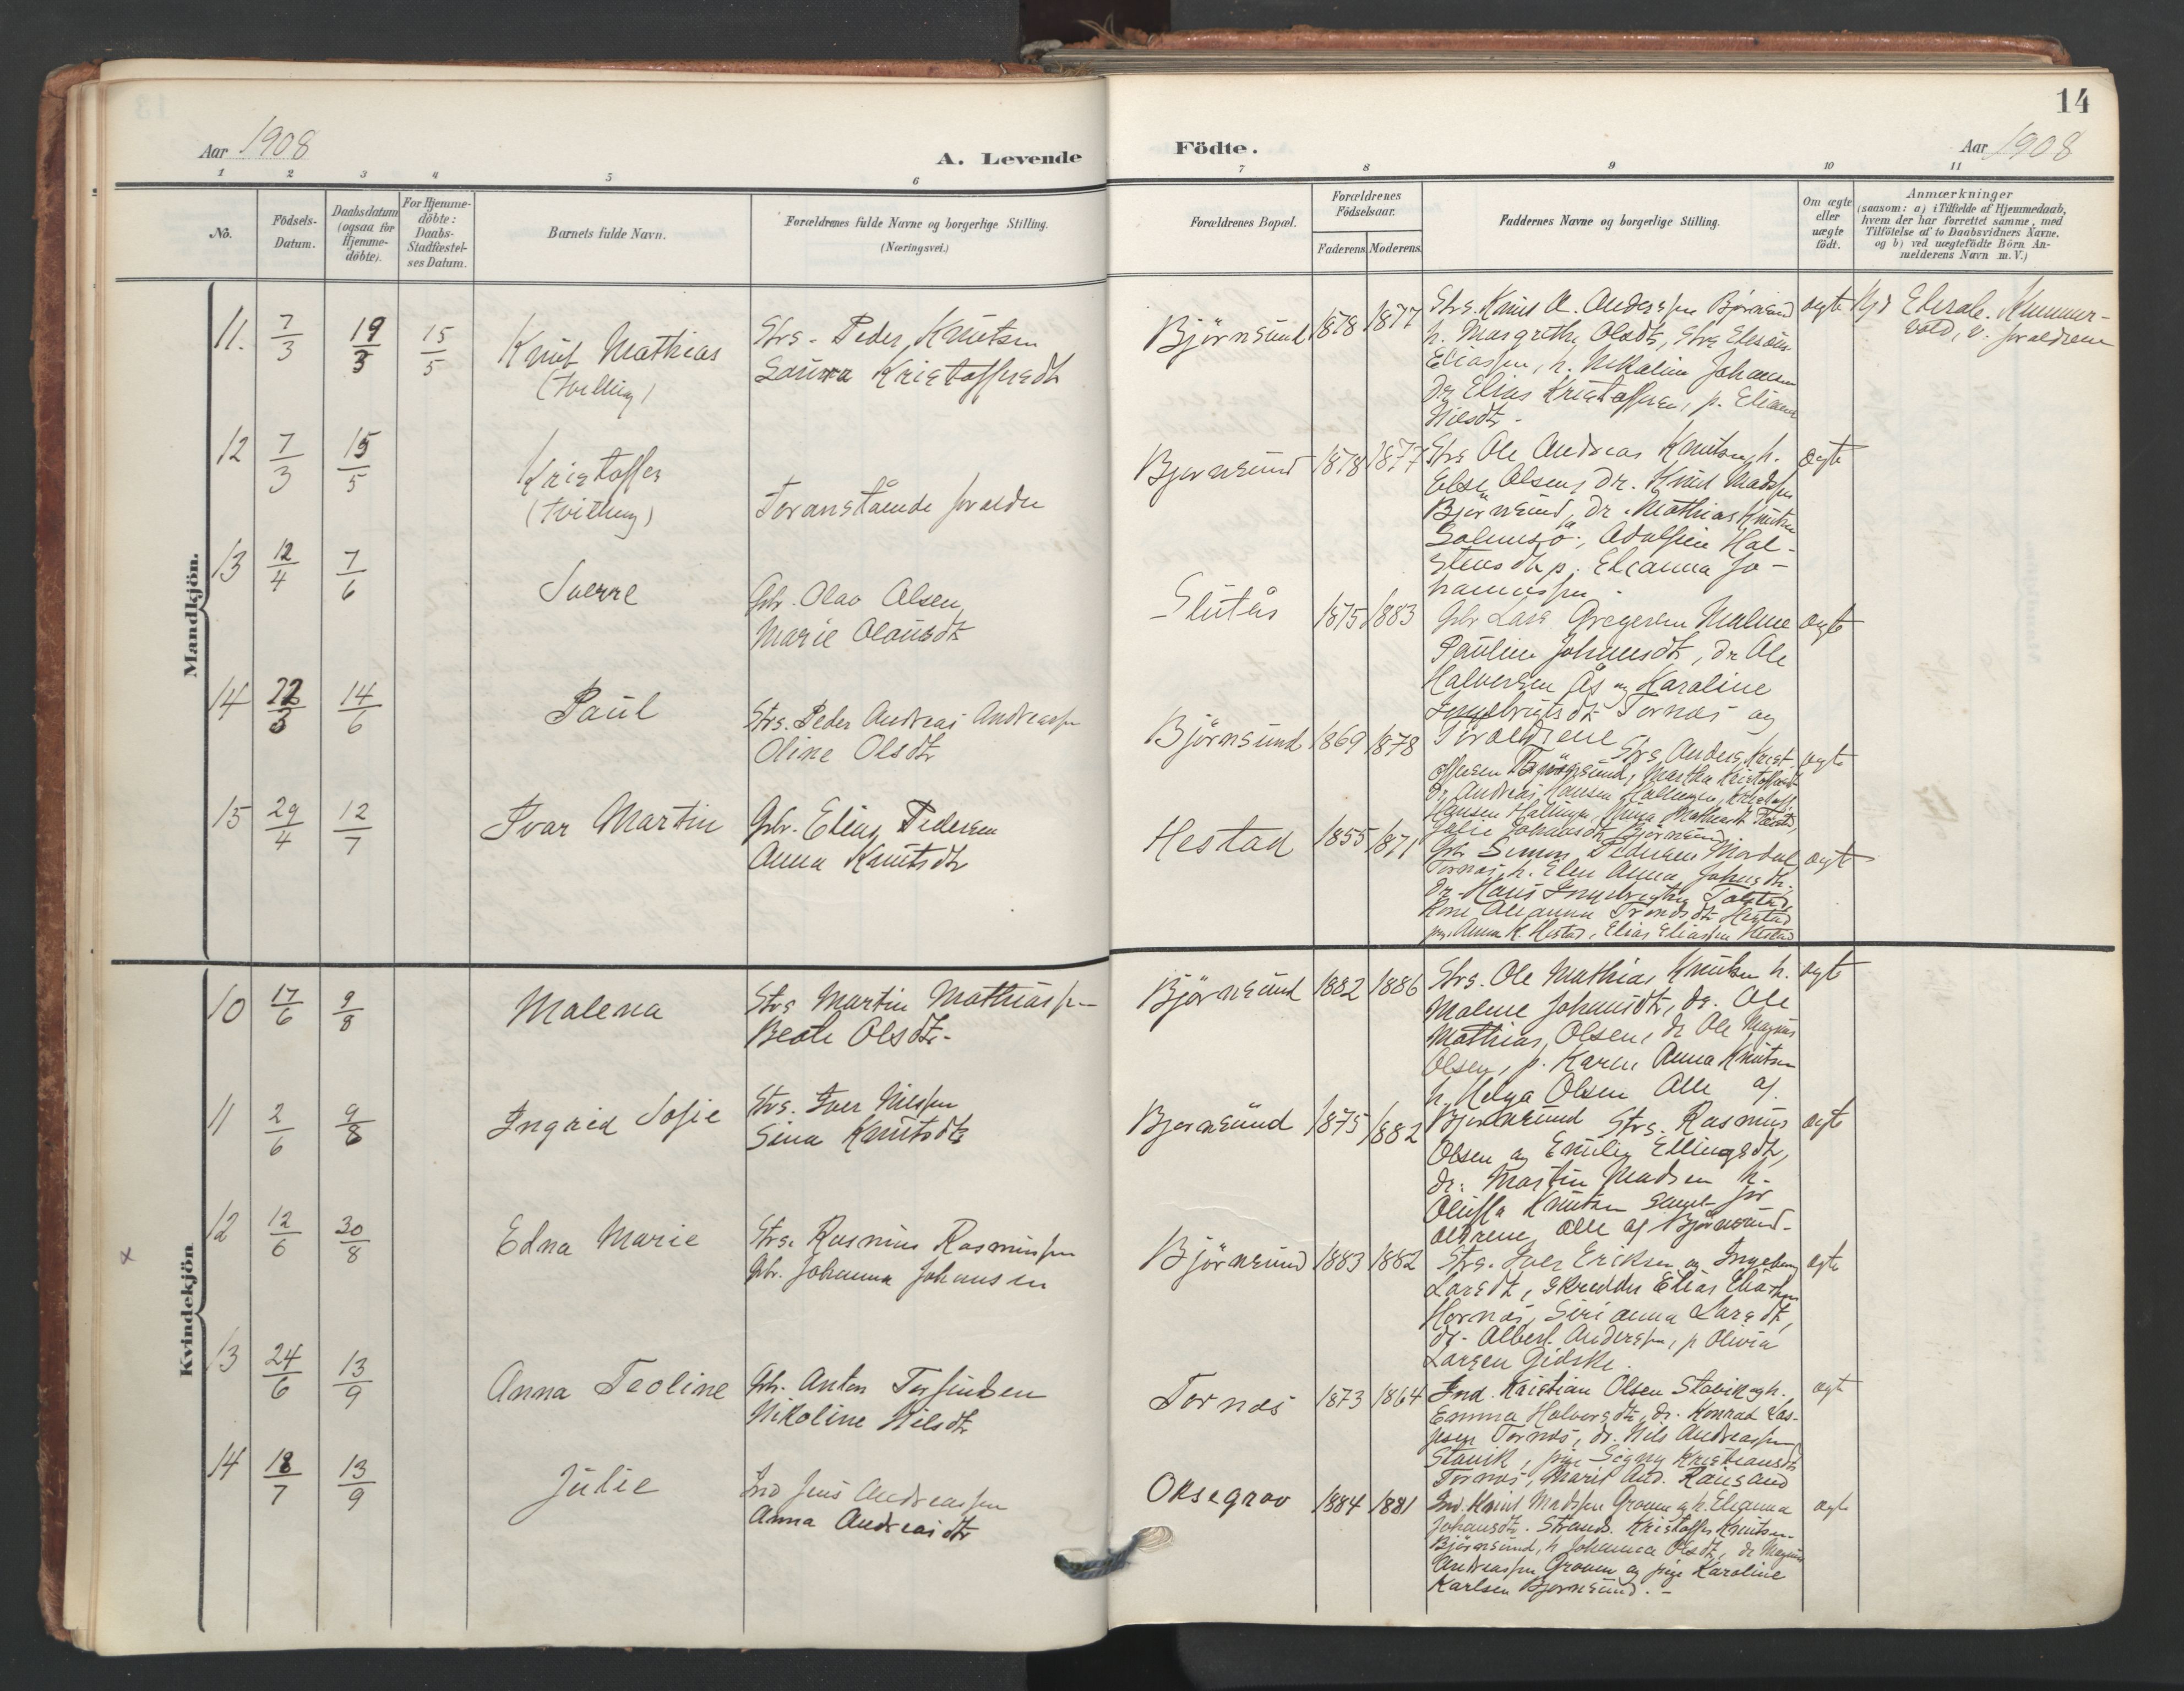 14
Aar 1908
A. Levende
Födte.
Aar 1908
1 2 3 4 5 6 7 8 9 10 11
No.
Födsels-
Datum.
Daabsdatum
(ogsaa för
Hjemme-
döbte).
For Hjemme-
döbte:
Daabs-
Stadfæstel-
ses Datum.
Barnets fulde Navn.
Forældrenes fulde Navne og borgerlige Stilling.
(Næringsvei.)
Forældrenes Bopæl.
Forældrenes
Födselsaar.
Faderens. Moderens.
Faddernes Navne og borgerlige Stilling.
Om ægte
eller
uægte
födt.
Anmærkninger
(saasom: a) i Tilfælde af Hjemmedaab,
hvem der har forrettet samme, med
Tilföielse af to Daabsvidners Navne.
og b) ved uægtefödte Börn An-
melderens Navn m. V.)
Mandkjön.
11. 7/3 19/3 15/5
Knut Mathias
(tvilling)
Strs. Peder Knutsen
Laurra Kristoffersdt
Björnsund 1878 1877
Strs. Knut A. Anderssen Björnsund
h. Margrethe Olsdt, Strs
Eliassen, h. Nikoline Johansen
Dr. Elias Kristoffersen, p. Elianna
Nilsdt.
ægte
12 7/3 15/5
Kristoffer
(tvilling)
Foranstående forældre
Bjornsund 1878 1877
Strs Ole Andreas Knutsen, h.
Else Olsen, Dr. Knut Madssen
Björnsund, Dr. Mathias Knutsen
Adolfine Hal-
stensdt p. Elianna Jo-
hannessen.
ægte
13 12/4 7/6
Sverre
Gbr. Olav Olsen,
Marie Olausdt
Slutås 1875 1883
Gbr Lars Gregersen Malme
Pauline Johansdt, Dr Ole
Halvorsen Ås og Karoline
Ingebrigtsdt Tornes og
Forældrene
ægte
14 22/3 14/6
Paul
Strs. Peder Andreas Andreassen
Oline Olsdt
Björnsund 1869 1878
Strs. Anders Krist-
offersen Björnsund, Martha Kristoffersdt
Dr. Andreas Hansen
Hansen
Julie Johansdt Björnsund
ægte
15 29/4 12/7
Ivar Martin
Gbr. Elias Pedersen
Anna Knutsdt
Hestad 1855 1871
Gbr Simon Pedersen
Tornes, h. Elen Anna Johansdt.
Dr. Hans Ingebrigtsen
Kone Olianna Trondsdt Hestad
Anna K. Hestad, Elias Eliassen Hestad
ægte
Kvindekjön
10 17/6 9/8
Malena
Strs Martin Mathiassen
Beate Olsdt.
Björnsund 1882 1886
Strs. Ole Mathias Knutsen h.
Malene Johansdt, dr. Ole
Mathias Olsen, dr Ole Magnus
Olsen, p. Karen Anna Knutsen
h. Helga Olsen Alle af
Björnsund
ægte
11 2/6 9/8
Ingrid Sofie
Strs. Iver Nilssen
Sina Knutsdt
Bjornsund 1875 1882
Strs. Rasmus
Olsen og Emilie Ellingsdt,
dr. Martin Madsen h.
Oluffa Knutsen samt for
ældrene, alle af Björnsund.
ægte
x
12 12/6 30/8
Edna Marie
Strs. Rasmus Rasmussen
Gbr. Johanna Johansen
Björnsund 1883 1882
Strs. Iver Eriksen og Ingeborg
Larsdt, skredder Elias
Hornes, Seri anna Larsdt,
dr. Albert Anderssen, p Olivia
Larsen Gidske.
ægte
13 24/6 13/9
Anna Teoline
Gbr. Anton Torfinsen
Nikoline Nilsdt
Tornes 1873 1864
Ind. Kristian Olsen Stavik og h.
Emma Halvorsdt, dr. Konrad Kas-
persen Tornes, dr. Nils Andreassen
Stavik, pige Signy Kristiansdt
Tornes, Marit And. Rausand
ægt
14 18/7 13/9
Julie
Ind Jens Andreassen
Anna Andreasdt
Oksegrov 1884 1881
Ind. Knut Madssen Groven og h. Elianna
Johansdt. Strands. Kristoffer Knutsen
Björnsund, h Johanna Olsdt, dr Magnus
Andreassen Groven og pige Karoline
Karlsen Bjornsund.
ægte